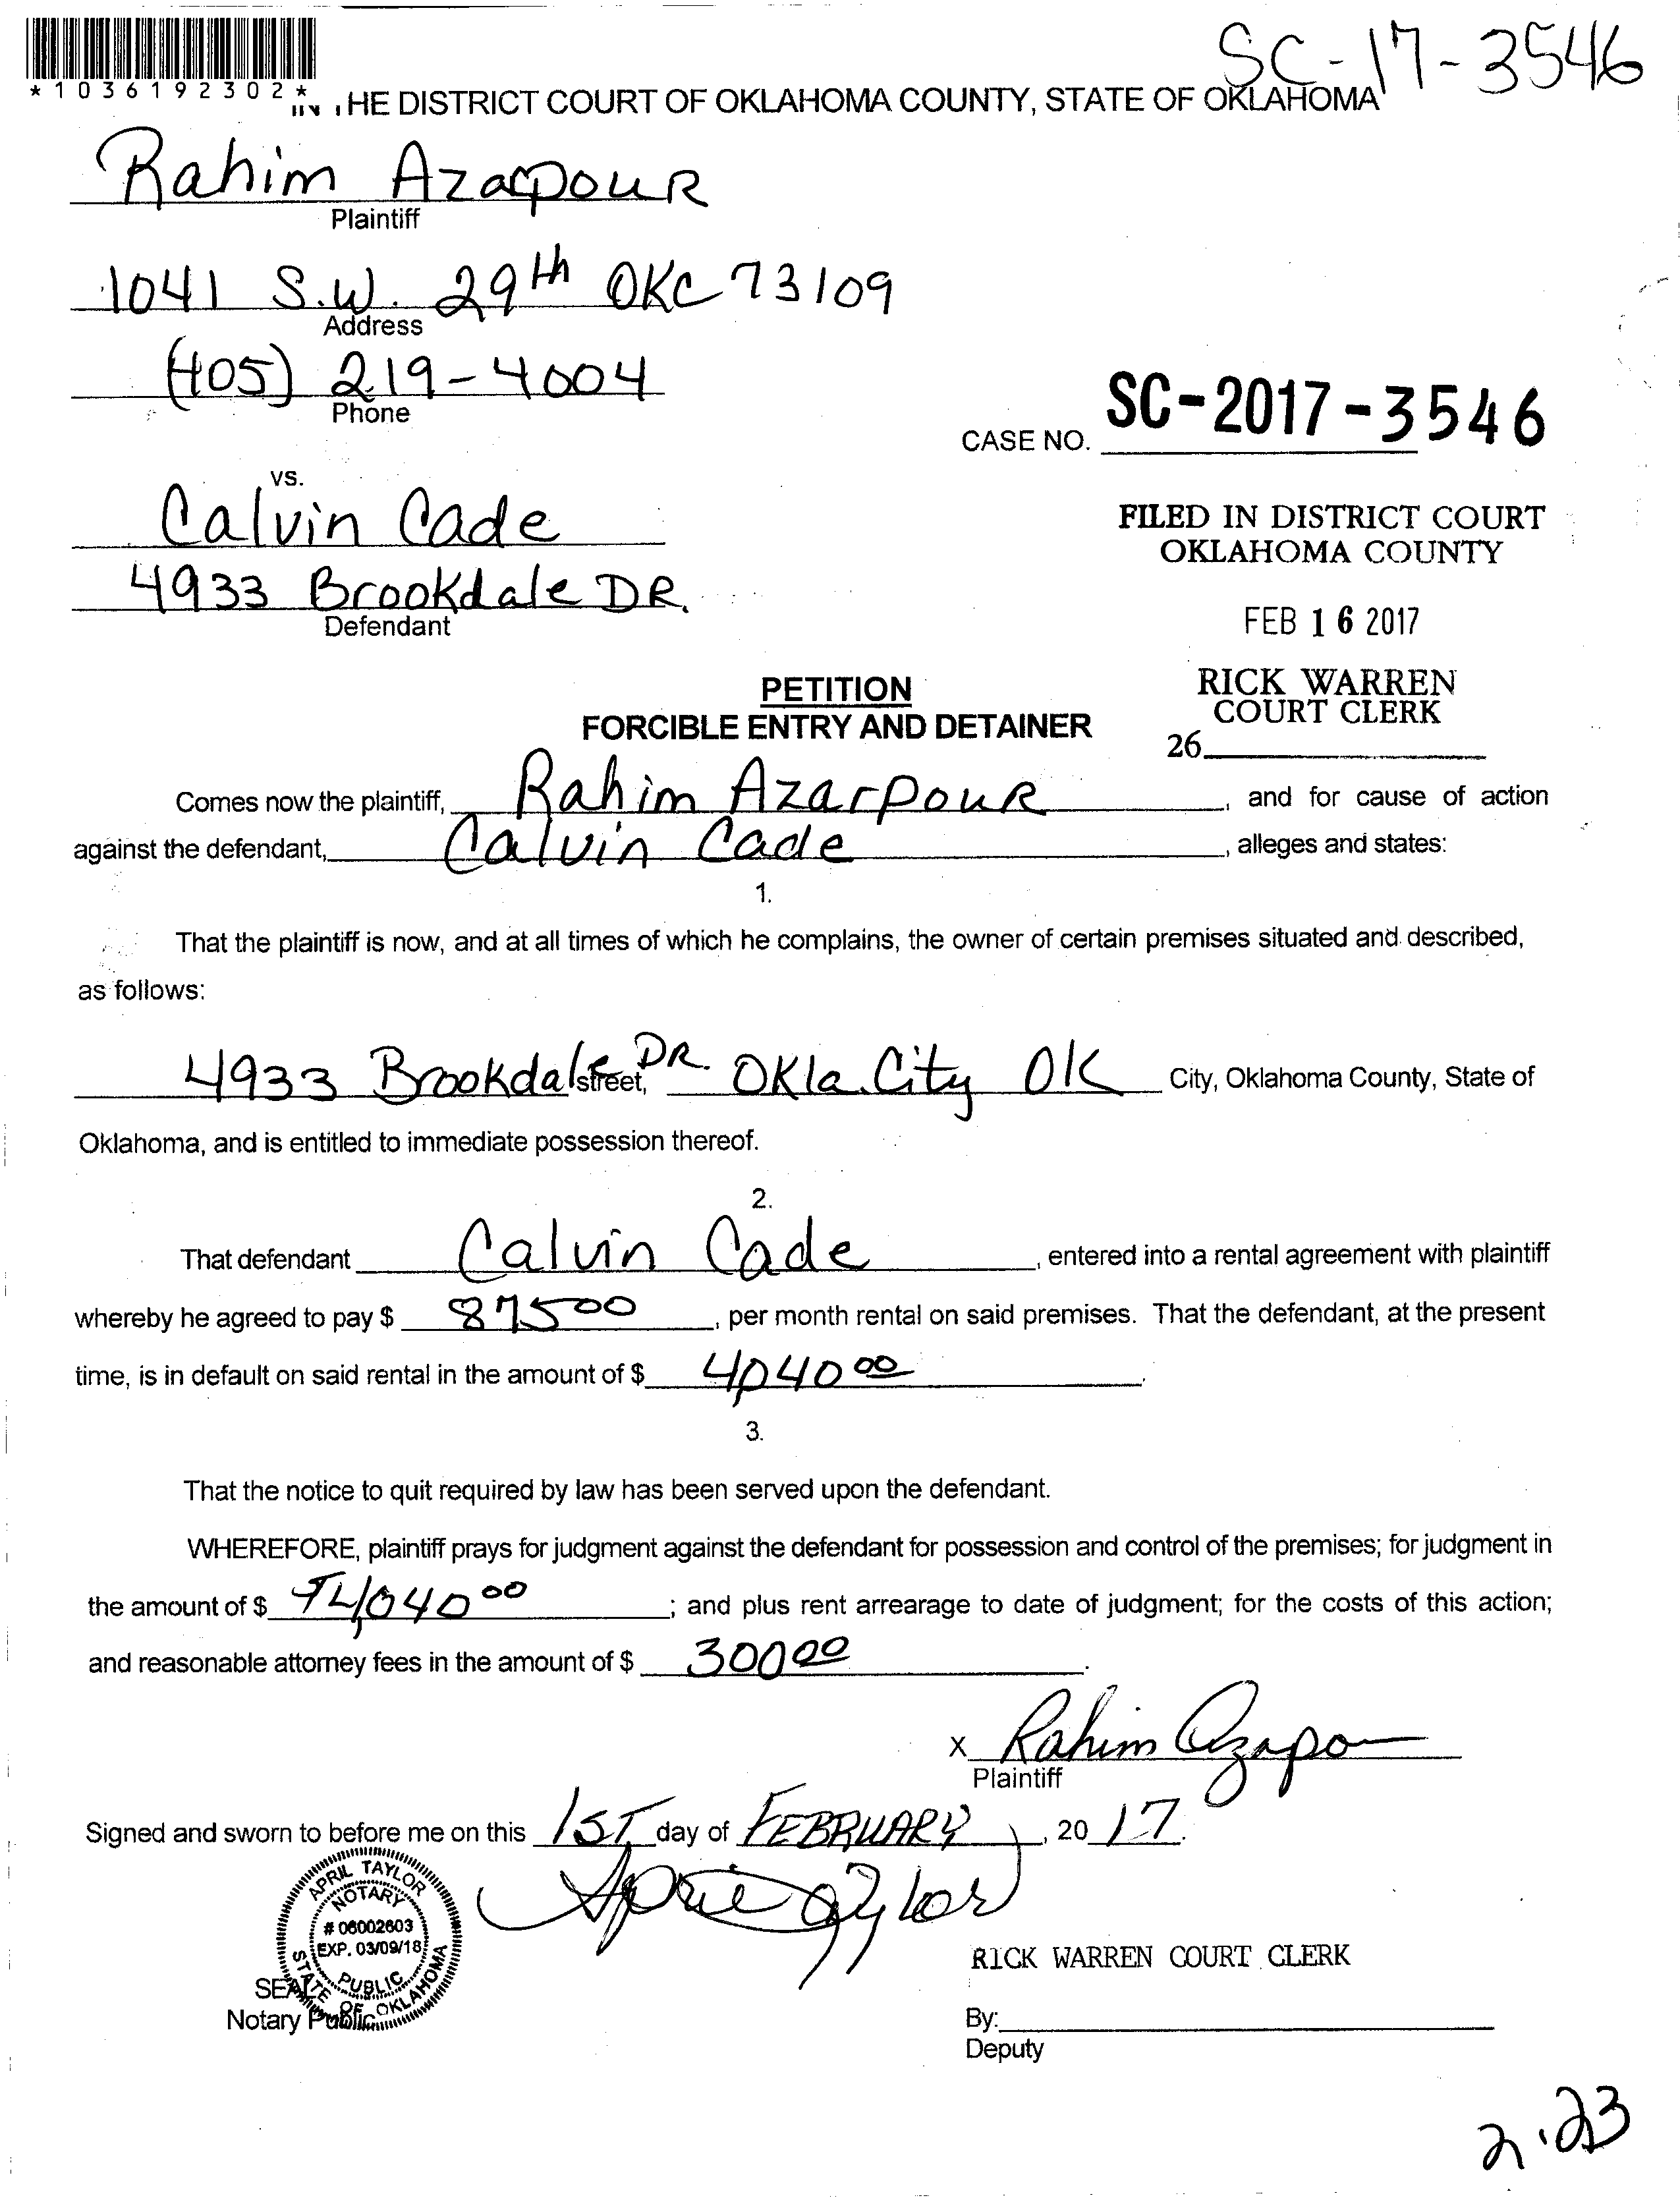 SC-17-3546
*1036192302*
HE DISTRICT COURT OF OKLAHOMA COUNTY, STATE OF OKLAHOMA
Rahim Azarpour
Plaintiff
1041 S.W. 29th OKC 73109
Address
(405) 219-4004
Phone
CASE NO. SC-2017-3546
vs.
Calvin Cade
4933 Brookdale DR.
Defendant
FILED IN DISTRICT COURT
OKLAHOMA COUNTY
FEB 16 2017
RICK WARREN
COURT CLERK
26
PETITION
FORCIBLE ENTRY AND DETAINER
Comes now the plaintiff, Rahim Azarpour, and for cause of action
against the defendant, Calvin Cade, alleges and states:
1.
That the plaintiff is now, and at all times of which he complains, the owner of certain premises situated and described,
as follows:
4933 Brookdale DR. street, Okla. City OK City, Oklahoma County, State of
Oklahoma, and is entitled to immediate possession thereof.
2.
That defendant Calvin Cade, entered into a rental agreement with plaintiff
whereby he agreed to pay $ 875 00, per month rental on said premises. That the defendant, at the present
time, is in default on said rental in the amount of $ 4,040 00.
3.
That the notice to quit required by law has been served upon the defendant.
WHEREFORE, plaintiff prays for judgment against the defendant for possession and control of the premises; for judgment in
the amount of $ 4,040 00; and plus rent arrearage to date of judgment; for the costs of this action;
and reasonable attorney fees in the amount of $ 300 00.
X Rahim Azapo
Plaintiff
Signed and sworn to before me on this 1ST day of FEBRUARY, 20 17.
April Taylor
APRIL TAYLOR
NOTARY
# 06002603
EXP. 03/09/18
PUBLIC
STATE OF OKLAHOMA
SEAL
Notary Public
RICK WARREN COURT CLERK
By:
Deputy
2.23